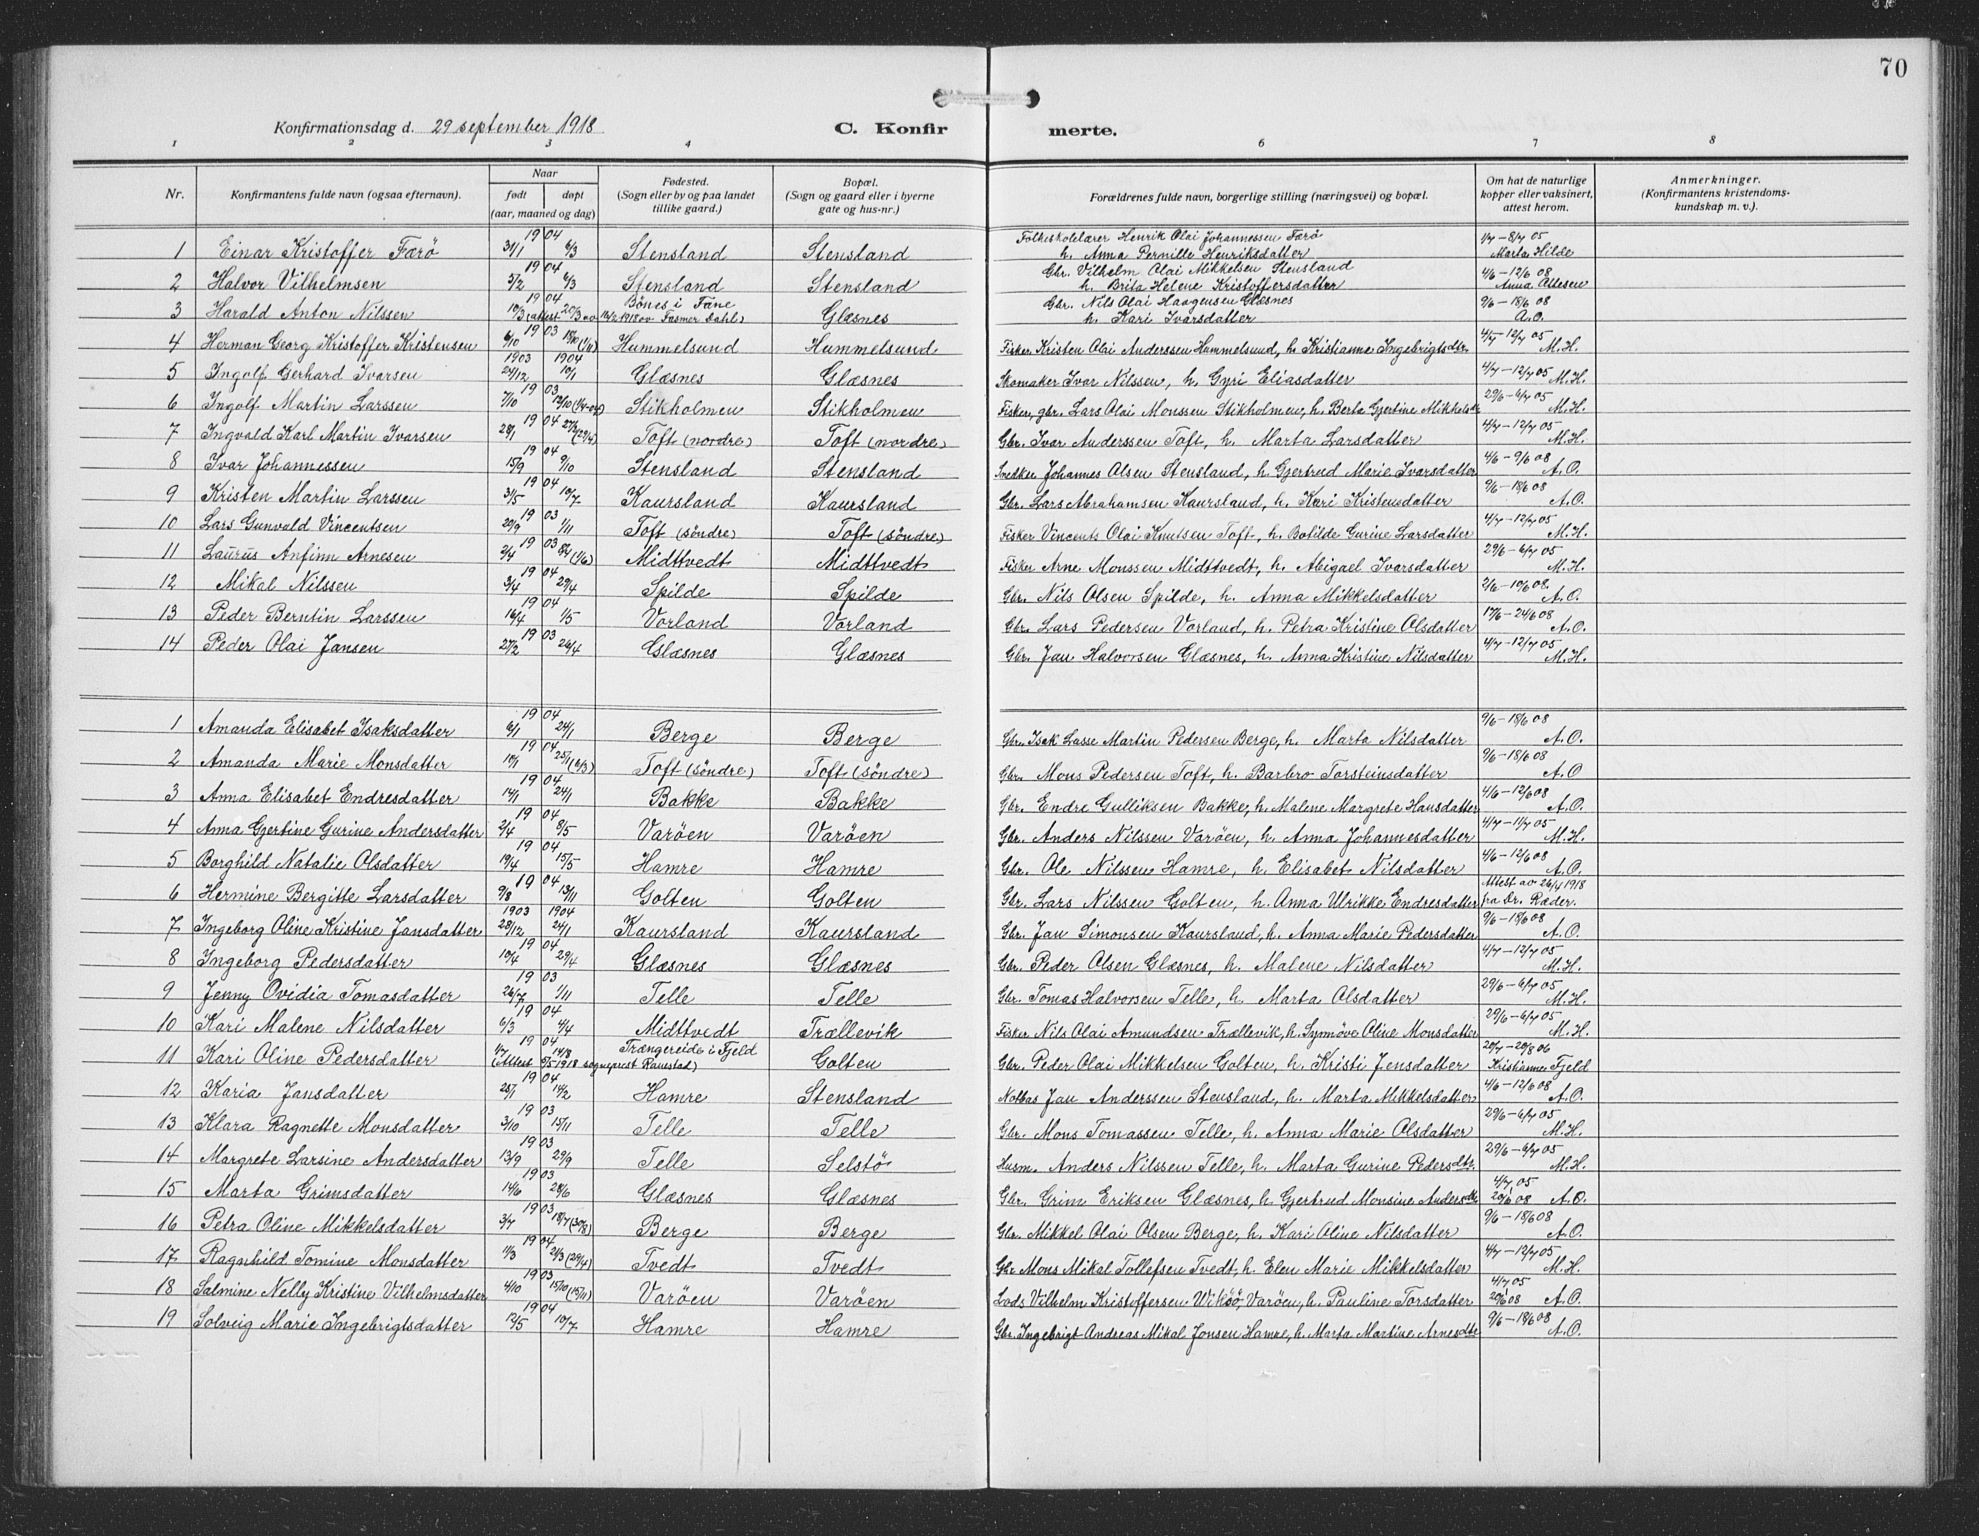 70
Konfirmationsdag d. 29 september 1918 C. Konfirmerte.
1 2 3 4 6 7 8
Nr. Konfirmantens fulde navn (ogsaa efternavn). Naar født døpt (aar, maaned og dag) Fødested. (Sogn eller by og paa landet tillike gaard.) Bopæl. (Sogn og gaard eller i byerne gate og hus-nr.) Forældrenes fulde navn, borgerlige stilling (næringsvei) og bopæl. Om hat de naturlige kopper eller vaksinert, attest herom. Anmerkninger. (Konfirmantens kristendoms-kundskap m. v.).
1 Einar Kristoffer Færö 1904 31/1 6/3 Stensland Stensland Folkeskolelærer Henrik Olai Johannessen Færö h. Anna Pernille Henriksdatter 1/7–8/7 05 Marta Hilde
2 Halvor Vilhelmsen 1904 5/2 6/3 Stensland Stensland Gbr. Vilhelm Olai Mikkelsen Stensland h. Brita Helene Kristoffersdatter 4/6–12/6 08 Anna Ottesen
3 Harald Anton Nilssen 1904 10/3 20/3 Bönes i Fane (attest av 16/2 1918 ov. Fasmer Dahl) Glæsnes Gbr. Nils Olai Haagensen Glæsnes h. Kari Ivarsdatter 9/6–18/6 08 A.O.
4 Herman Georg Kristoffer Kristensen 1903 6/10 18/10 (1/11) Hummelsund Hummelsund Fisker Kristen Olai Anderssen Hummelsund, h. Kristianne Ingebrigtsdtr. 4/7–12/7 05 M.H.
5 Ingolf Gerhard Ivarsen 1903 1904 24/12 10/1 Glæsnes Glæsnes Skomaker Ivar Nilssen, h. Gyri Eliasdatter 4/7–12/7 05 M.H.
6 Ingolf Martin Larssen 1903 7/10 12/10 (1/4-04) Stikholmen Stikholmen Fisker, gbr. Lars Olai Monssen Stikholmen, h. Berta Gjertine Mikkelsdtr 29/6–6/7 05 M.H.
7 Ingvald Karl Martin Ivarsen 1904 28/1 (29/4) Toft (nordre) Toft (nordre) Gbr. Ivar Anderssen Toft, h. Marta Larsdatter 4/7–12/7 05 M.H.
8 Ivar Johannessen 1904 15/9 9/10 Stensland Stensland Snekker Johannes Olsen Stensland, h. Gjertrud Marie Ivarsdatter 4/6–9/6 08 A.O.
9 Kristen Martin Larssen 1904 31/5 10/7 Kaursland Kaursland Gbr. Lars Abrahamsen Kaursland, h. Kari Kristensdatter 9/6–18/6 08 A.O.
10 Lars Gunvald Vincentsen 1903 20/9 1/11 Toft (söndre) Toft (söndre) Fisker Vincents Olai Knutsen Toft, h. Botilde Gurine Larsdatter 4/7–12/7 05 M.H.
11 Laurus Anfinn Arnesen 1903 2/4 (1/6) Midttvedt Midttvedt Fisker Arne Monssen Midttvedt, h. Abigael Ivarsdatter 29/6–6/7 05 M.H.
12 Mikal Nilssen 1904 3/4 29/4 Spilde Spilde Gbr. Nils Olsen Spilde, h. Anna Mikkelsdatter 2/6–10/6 08. A.O.
13 Peder Berntin Larssen 1904 16/4 1/5 Vorland Vorland Gbr. Lars Pedersen Vorland, h. Petra Kristine Olsdatter 17/6–24/6 08 A.O.
14 Peder Olai Jansen 1903 27/2 26/4 Glæsnes Glæsnes Gbr. Jan Halvorsen Glæsnes, h. Anna Kristine Nilsdatter 4/7–12/7 05 M.H.
1 Amanda Elisabet Isaksdatter 1904 6/1 24/1 Berge Berge Gbr. Isak Lasse Martin Pedersen Berge, h. Marta Nilsdatter 9/6–18/6 08 A.O.
2 Amanda Marie Monsdatter 1904 18/1 25/1 (6/3) Toft (söndre) Toft (söndre) Gbr. Mons Pedersen Toft, h. Barbro Torsteinsdatter 9/6–18/6 08 A.O
3 Anna Elisabet Endresdatter 1904 14/1 24/1 Bakke Bakke Gbr. Endre Gulliksen Bakke, h. Malene Margrete Hansdatter 4/6–12/6 08 A.O.
4 Anna Gjertine Gurine Andersdatter 1904 2/4 8/5 Varöen Varöen Gbr. Anders Nilssen Varöen, h. Anna Johannesdatter 4/7–11/7 05 M.H.
5 Borghild Natalie Olsdatter 1904 19/4 15/5 Hamre Hamre Gbr. Ole Nilssen Hamre, h. Elisabet Nilsdatter 4/6–12/6 08 A.O.
6 Hermine Bergitte Larsdatter 1904 9/8 13/11 Golten Golten Gbr. Lars Nilssen Golten, h. Anna Ulrikke Endresdatter Attest av 26/4 1918 fra Dr. Ræder.
7 Ingeborg Oline Kristine Jansdatter 1903 1904 28/12 24/1 Kaursland Kaursland Gbr. Jan Simonsen Kaursland, h. Anna Marie Pedersdatter 9/6–18/6 08 A.O.
8 Ingeborg Pedersdatter 1904 10/4 29/4 Glæsnes Glæsnes Gbr. Peder Olsen Glæsnes, h. Malene Nilsdatter 4/7–12/7 05 M.H.
9 Jenny Ovidia Tomasdatter 1903 26/7 1/11 Telle Telle Gbr. Tomas Halvorsen Telle, h. Marta Olsdatter 29/6–6/7 05 M.H.
10 Kari Malene Nilsdatter 1904 6/3 4/4 Midttvedt Trællevik Fisker Nils Olai Amundsen Trællevik, h. Synnöve Oline Monsdatter 29/6–6/7 05 M.H.
11 Kari Oline Pedersdatter 1904 1/7 14/8 Trængereide i Fjeld (Attest 5/5-1918 sogneprest Ranestad) Golten Gbr. Peder Olai Mikkelsen Golten, h. Kristi Jensdatter 20/7–20/8 06 Kristianne Fjeld
12 Karia Jansdatter 1904 25/1 14/2 Hamre Stensland Notbas Jan Anderssen Stensland, h. Marta Mikkelsdatter 4/6–12/6 08 A.O.
13 Klara Ragnette Monsdatter 1903 3/10 15/11 Telle Telle Gbr. Mons Tomassen Telle, h. Anna Marie Olsdatter 29/6–6/7 05 M.H.
14 Margrete Larsine Andersdatter 1903 13/9 29/9 Telle Selstö Husm. Anders Nilssen Telle, h. Marta Gurine Pedersdtr. 29/6–6/7 05 M.H.
15 Marta Grimsdatter 1903 14/6 28/6 Glæsnes Glæsnes Gbr. Grim Eriksen Glæsnes, h. Gjertrud Monsine Andersdtr 4/7 05 20/6 08 A.O.
16 Petra Oline Mikkelsdatter 1903 3/7 18/7 (30/8) Berge Berge Gbr. Mikkel Olai Olsen Berge, h. Kari Oline Nilsdatter 9/6–18/6 08 A.O.
17 Ragnhild Tomine Monsdatter 1904 11/3 21/3 (29/4) Tvedt Tvedt Gbr Mons Mikal Tollefsen Tvedt, h. Elen Marie Mikkelsdatter 4/7–12/7 05 M.H.
18 Salmine Nelly Kristine Vilhelmsdatter 1903 4/10 15/10 (15/11) Varöen Varöen Lods Vilhelm Kristoffersen Wiksö, Varöen, h. Pauline Torsdatter 4/7 05 20/6 08 A.O.
19 Solveig Marie Ingebrigtsdatter 1904 12/5 10/7 Hamre Hamre Gbr. Ingebrigt Andreas Mikal Jonsen Hamre, h. Marta Martine Arnesdtr 9/6–18/6 08 A.O.